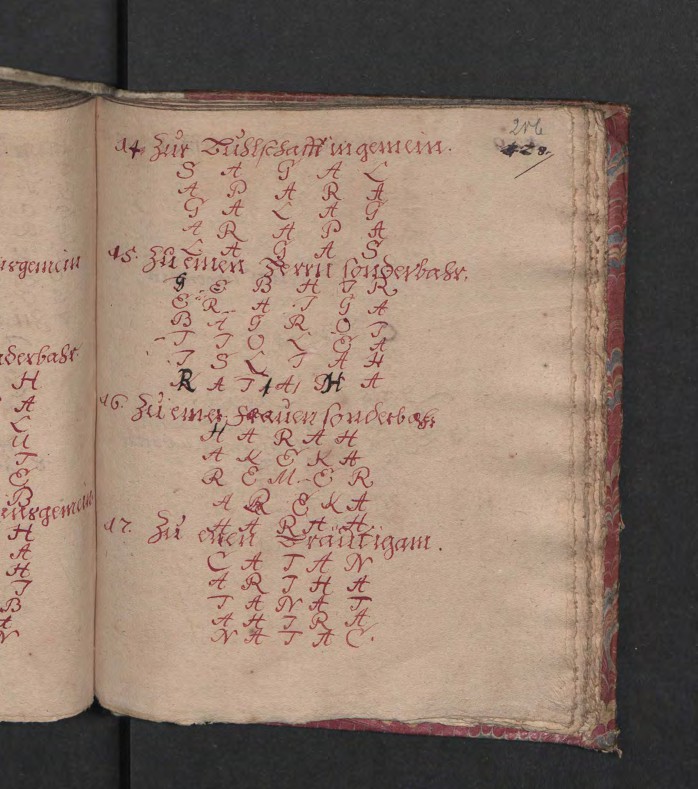 urgemein
nderbahr.
H
A
L
U
T
E
B
urgemein
H
A
H
T
B
A
N
14. Zur Buhlschafft in gemein.
S A G A L
A P A R A
G A L A G
A R A P A
L A G A S
15. Zu einen Herrn sonderbahr.
G E B H T R
E R A T G A
B A G R O T
T T O L E A
T S L T A H
R A T A H A
16. Zu einer Frauen sonderbahr
H A R A H
A K E K A
R E M E R
A R E K A
H A R A H.
17. Zu einen Bräutigam.
C A T A N
A R T H A
T A N A T
A H T R A
N A T A C.